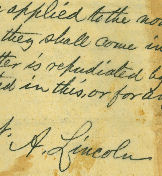 applied to the
they shall come in
ter is repudiated b
ed in this, or for a
A. Lincoln